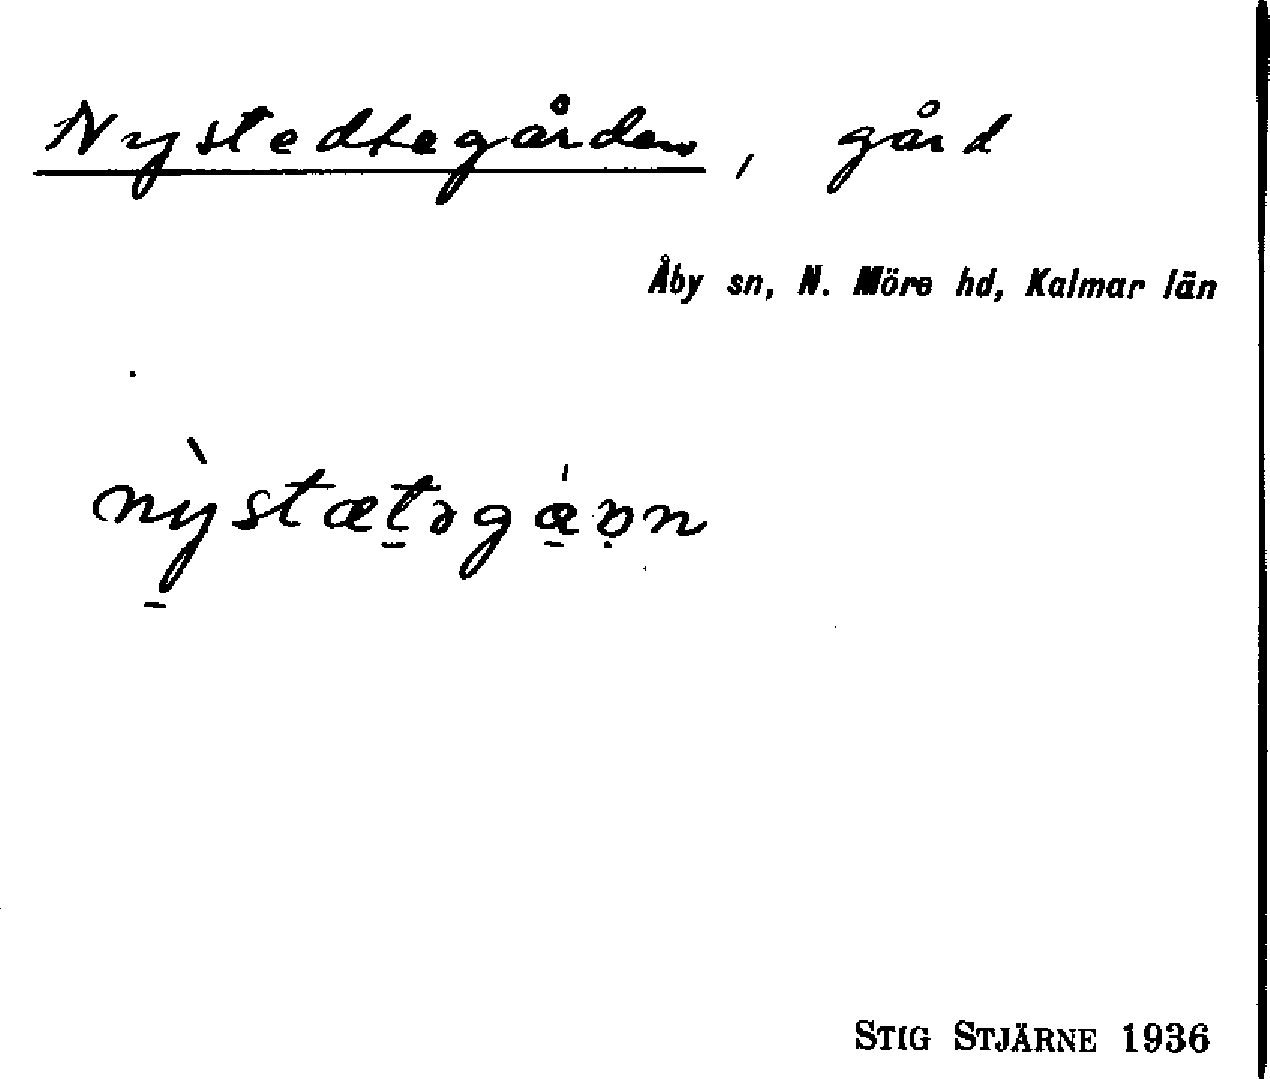 Nystedtegården, gård
Åby sn, N. Möre hd, Kalmar län
nỳstætəgǻn
STIG STJÄRNE 1936